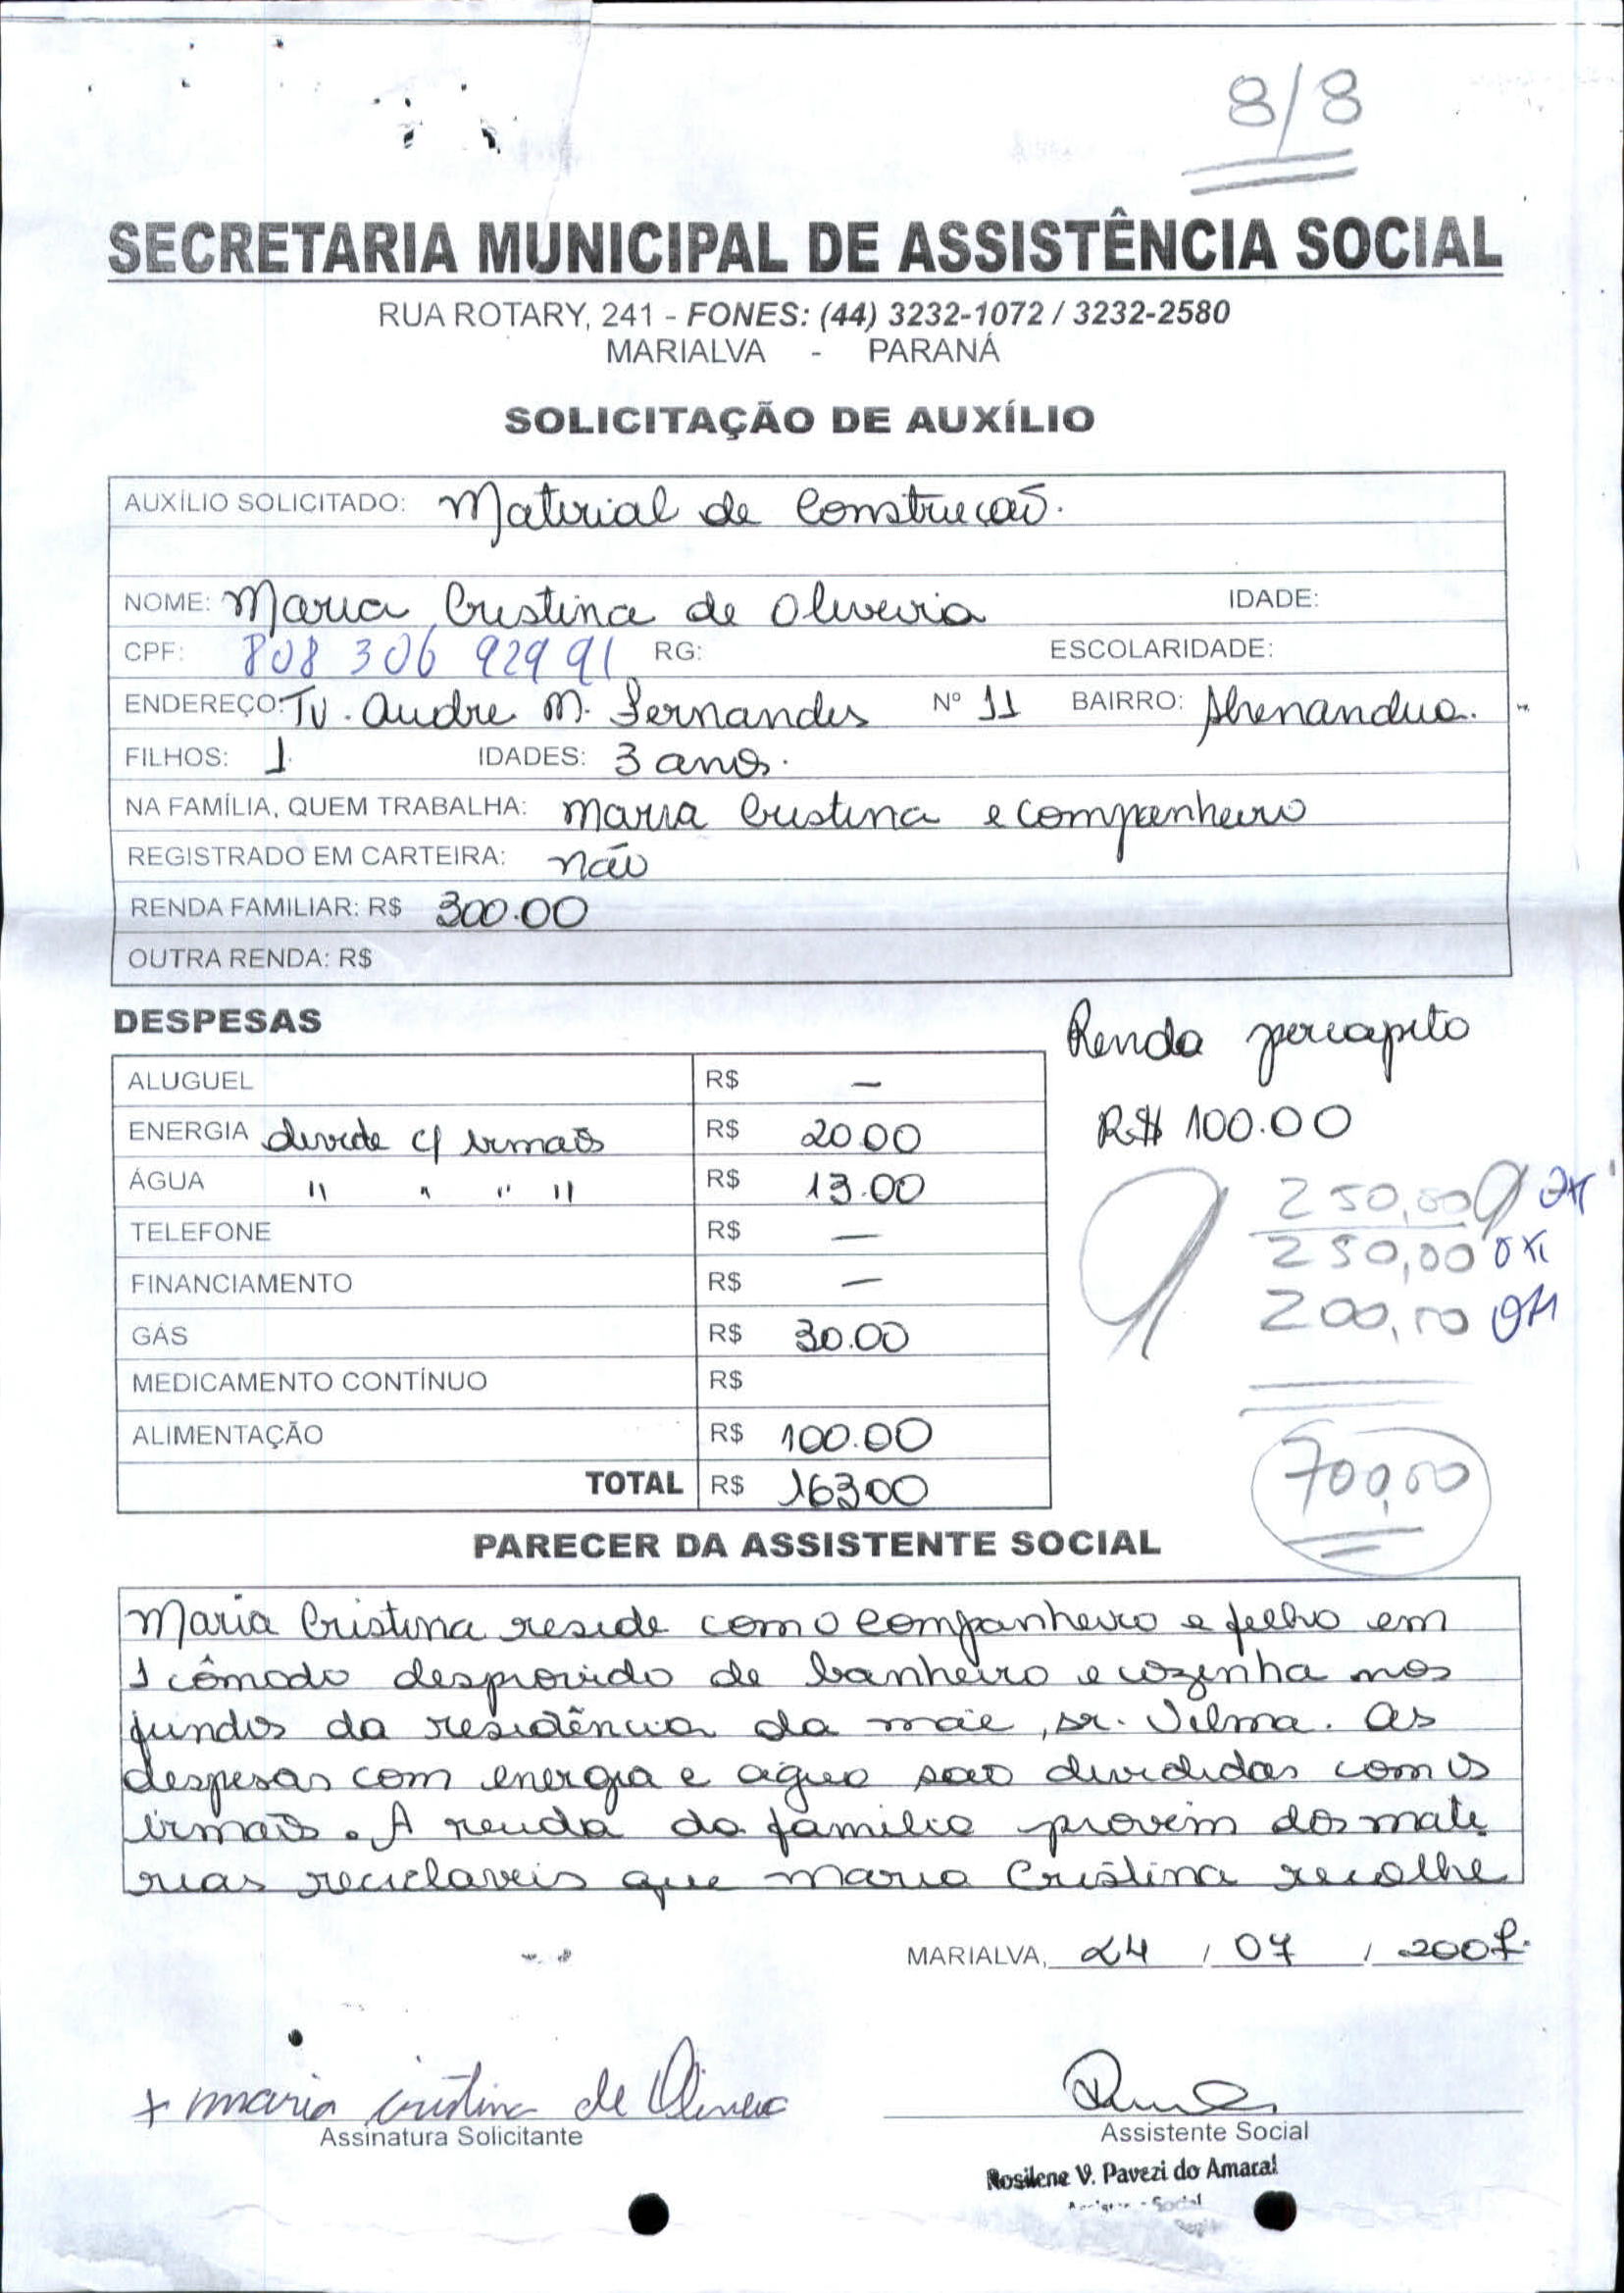 8/8
SECRETARIA MUNICIPAL DE ASSISTÊNCIA SOCIAL
RUA ROTARY, 241 - FONES: (44) 3232-1072 / 3232-2580
MARIALVA - PARANÁ
SOLICITAÇÃO DE AUXÍLIO
AUXÍLIO SOLICITADO: Material de Construção.
NOME: Maria Cristina de Oliveira IDADE:
CPF: 808 306 929 91 RG: ESCOLARIDADE:
ENDEREÇO: Tv. Andre M. Fernandes Nº 11 BAIRRO: Shenandua.
FILHOS: 1 IDADES: 3 anos.
NA FAMÍLIA, QUEM TRABALHA: Maria Cristina e companheiro
REGISTRADO EM CARTEIRA: não
RENDA FAMILIAR: R$ 300.00
OUTRA RENDA: R$
DESPESAS
Renda percapito
R$ 100.00
ALUGUEL R$ —
ENERGIA divide c/ irmãos R$ 20.00
ÁGUA " " " " R$ 13.00
250,00
TELEFONE R$ —
250,00
FINANCIAMENTO R$ —
200,00
GÁS R$ 30.00
MEDICAMENTO CONTÍNUO R$
ALIMENTAÇÃO R$ 100.00
TOTAL R$ 163.00
700,00
PARECER DA ASSISTENTE SOCIAL
Maria Cristina reside com o companheiro e filho em
1 cômodo desprovido de banheiro e cozinha nos
fundos da residência da mãe, sr. Vilma. As
despesas com energia e água são divididas com os
irmãos. A renda da familia provém dos mate
rias reciclaveis que Maria Cristina recolhe
MARIALVA, 24 / 07 / 2007.
+ maria cristina de Oliveira
Assinatura Solicitante
Assistente Social
Rosilene V. Pavezi do Amaral
Social